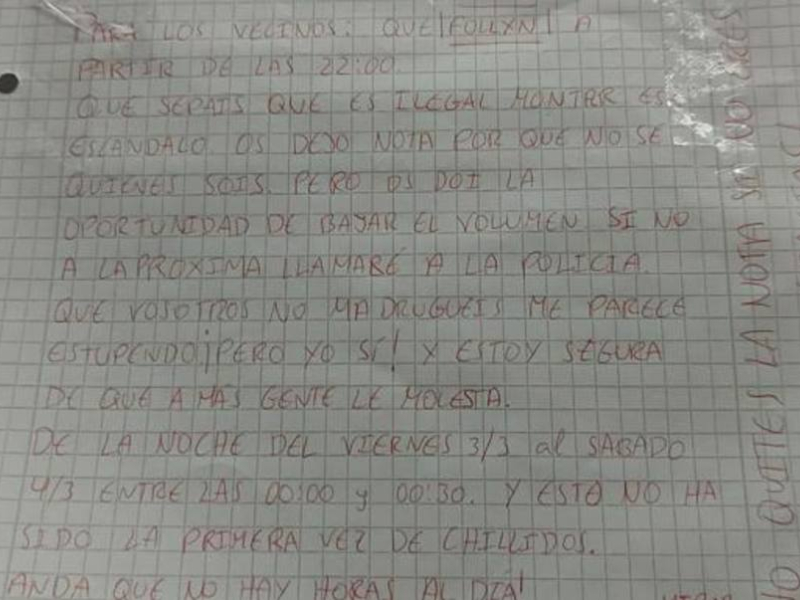 PARA LOS VECINOS: QUE FOLLXN A
PARTIR DE LAS 22:00.
QUE SEPAIS QUE ES ILEGAL MONTAR ESE
ESCANDALO. OS DEJO NOTA POR QUE NO SE
QUIENES SOIS. PERO OS DOI LA
OPORTUNIDAD DE BAJAR EL VOLUMEN SI NO
A LA PROXIMA LLAMARÉ A LA POLICIA.
QUE VOSOTROS NO MADRUGUEIS ME PARECE
ESTUPENDO ¡PERO YO SÍ! Y ESTOY SEGURA
DE QUE A MAS GENTE LE MOLESTA.
DE LA NOCHE DEL VIERNES 3/3 al SABADO
4/3 ENTRE LAS 00:00 y 00:30. Y ESTE NO HA
SIDO LA PRIMERA VEZ DE CHILLIDOS.
ANDA QUE NO HAY HORAS AL DIA!
NO QUITES LA NOTA SI NO ERES